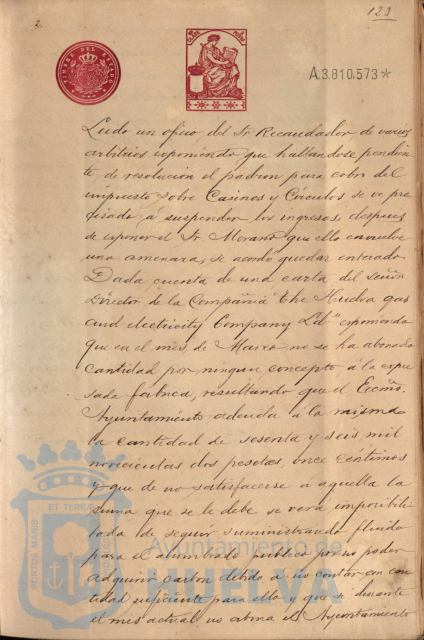 2
123
TIMBRE DEL ESTADO
A.3.810.573*
Leido un oficio del Sr Recaudador de varios
arbitrios exponiendo que hallandose pendien
te de resolución el padron para cobro del
impuesto sobre Casinos y Círculos se ve pre
cisado á suspender los ingresos despues
de exponer el Sr Morano que ello envuelve
una amenaza, se acordó quedar enterado.
Dada cuenta de una carta del Señor
Director de la Compañia "The Huelva gas
and electricity Company Ld" exponiendo
que en el mes de Marzo no se ha abonado
cantidad por ningun concepto á la expre
sada fabrica, resultando que el Excmo.
Ayuntamiento adeuda á la misma
la cantidad de sesenta y seis mil
novecientas dos pesetas, once céntimos
y que de no satisfacerse á aquella la
suma que se le debe se verá imposibili
tada de seguir suministrando fluido
para el alumbrado público por no poder
adquirir carbon debido á no contar con can
tidad suficiente para ello y que si durante
el mes actual no abona el Ayuntamiento
PORTUS MARIS ET TERRAE
Ayuntamiento de
HUELVA